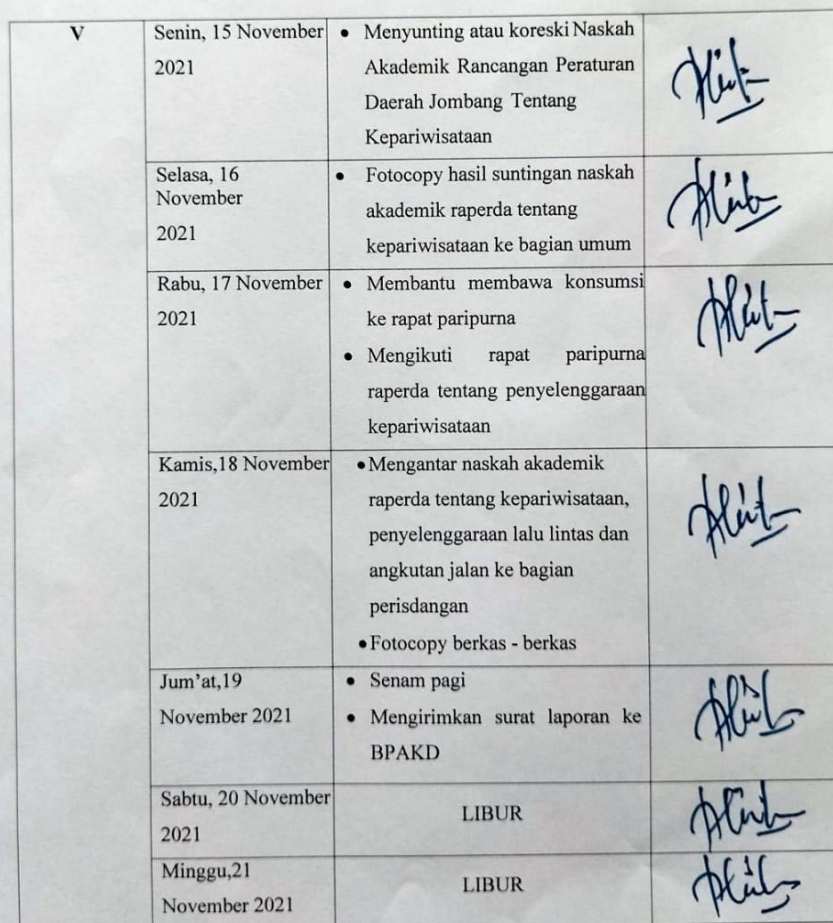 V
Senin, 15 November
2021
• Menyunting atau koreski Naskah
Akademik Rancangan Peraturan
Daerah Jombang Tentang
Kepariwisataan
Selasa, 16
November
2021
• Fotocopy hasil suntingan naskah
akademik raperda tentang
kepariwisataan ke bagian umum
Rabu, 17 November
2021
• Membantu membawa konsumsi
ke rapat paripurna
• Mengikuti rapat paripurna
raperda tentang penyelenggaraan
kepariwisataan
Kamis,18 November
2021
• Mengantar naskah akademik
raperda tentang kepariwisataan,
penyelenggaraan lalu lintas dan
angkutan jalan ke bagian
perisdangan
• Fotocopy berkas - berkas
Jum’at,19
November 2021
• Senam pagi
• Mengirimkan surat laporan ke
BPAKD
Sabtu, 20 November
2021
LIBUR
Minggu,21
November 2021
LIBUR